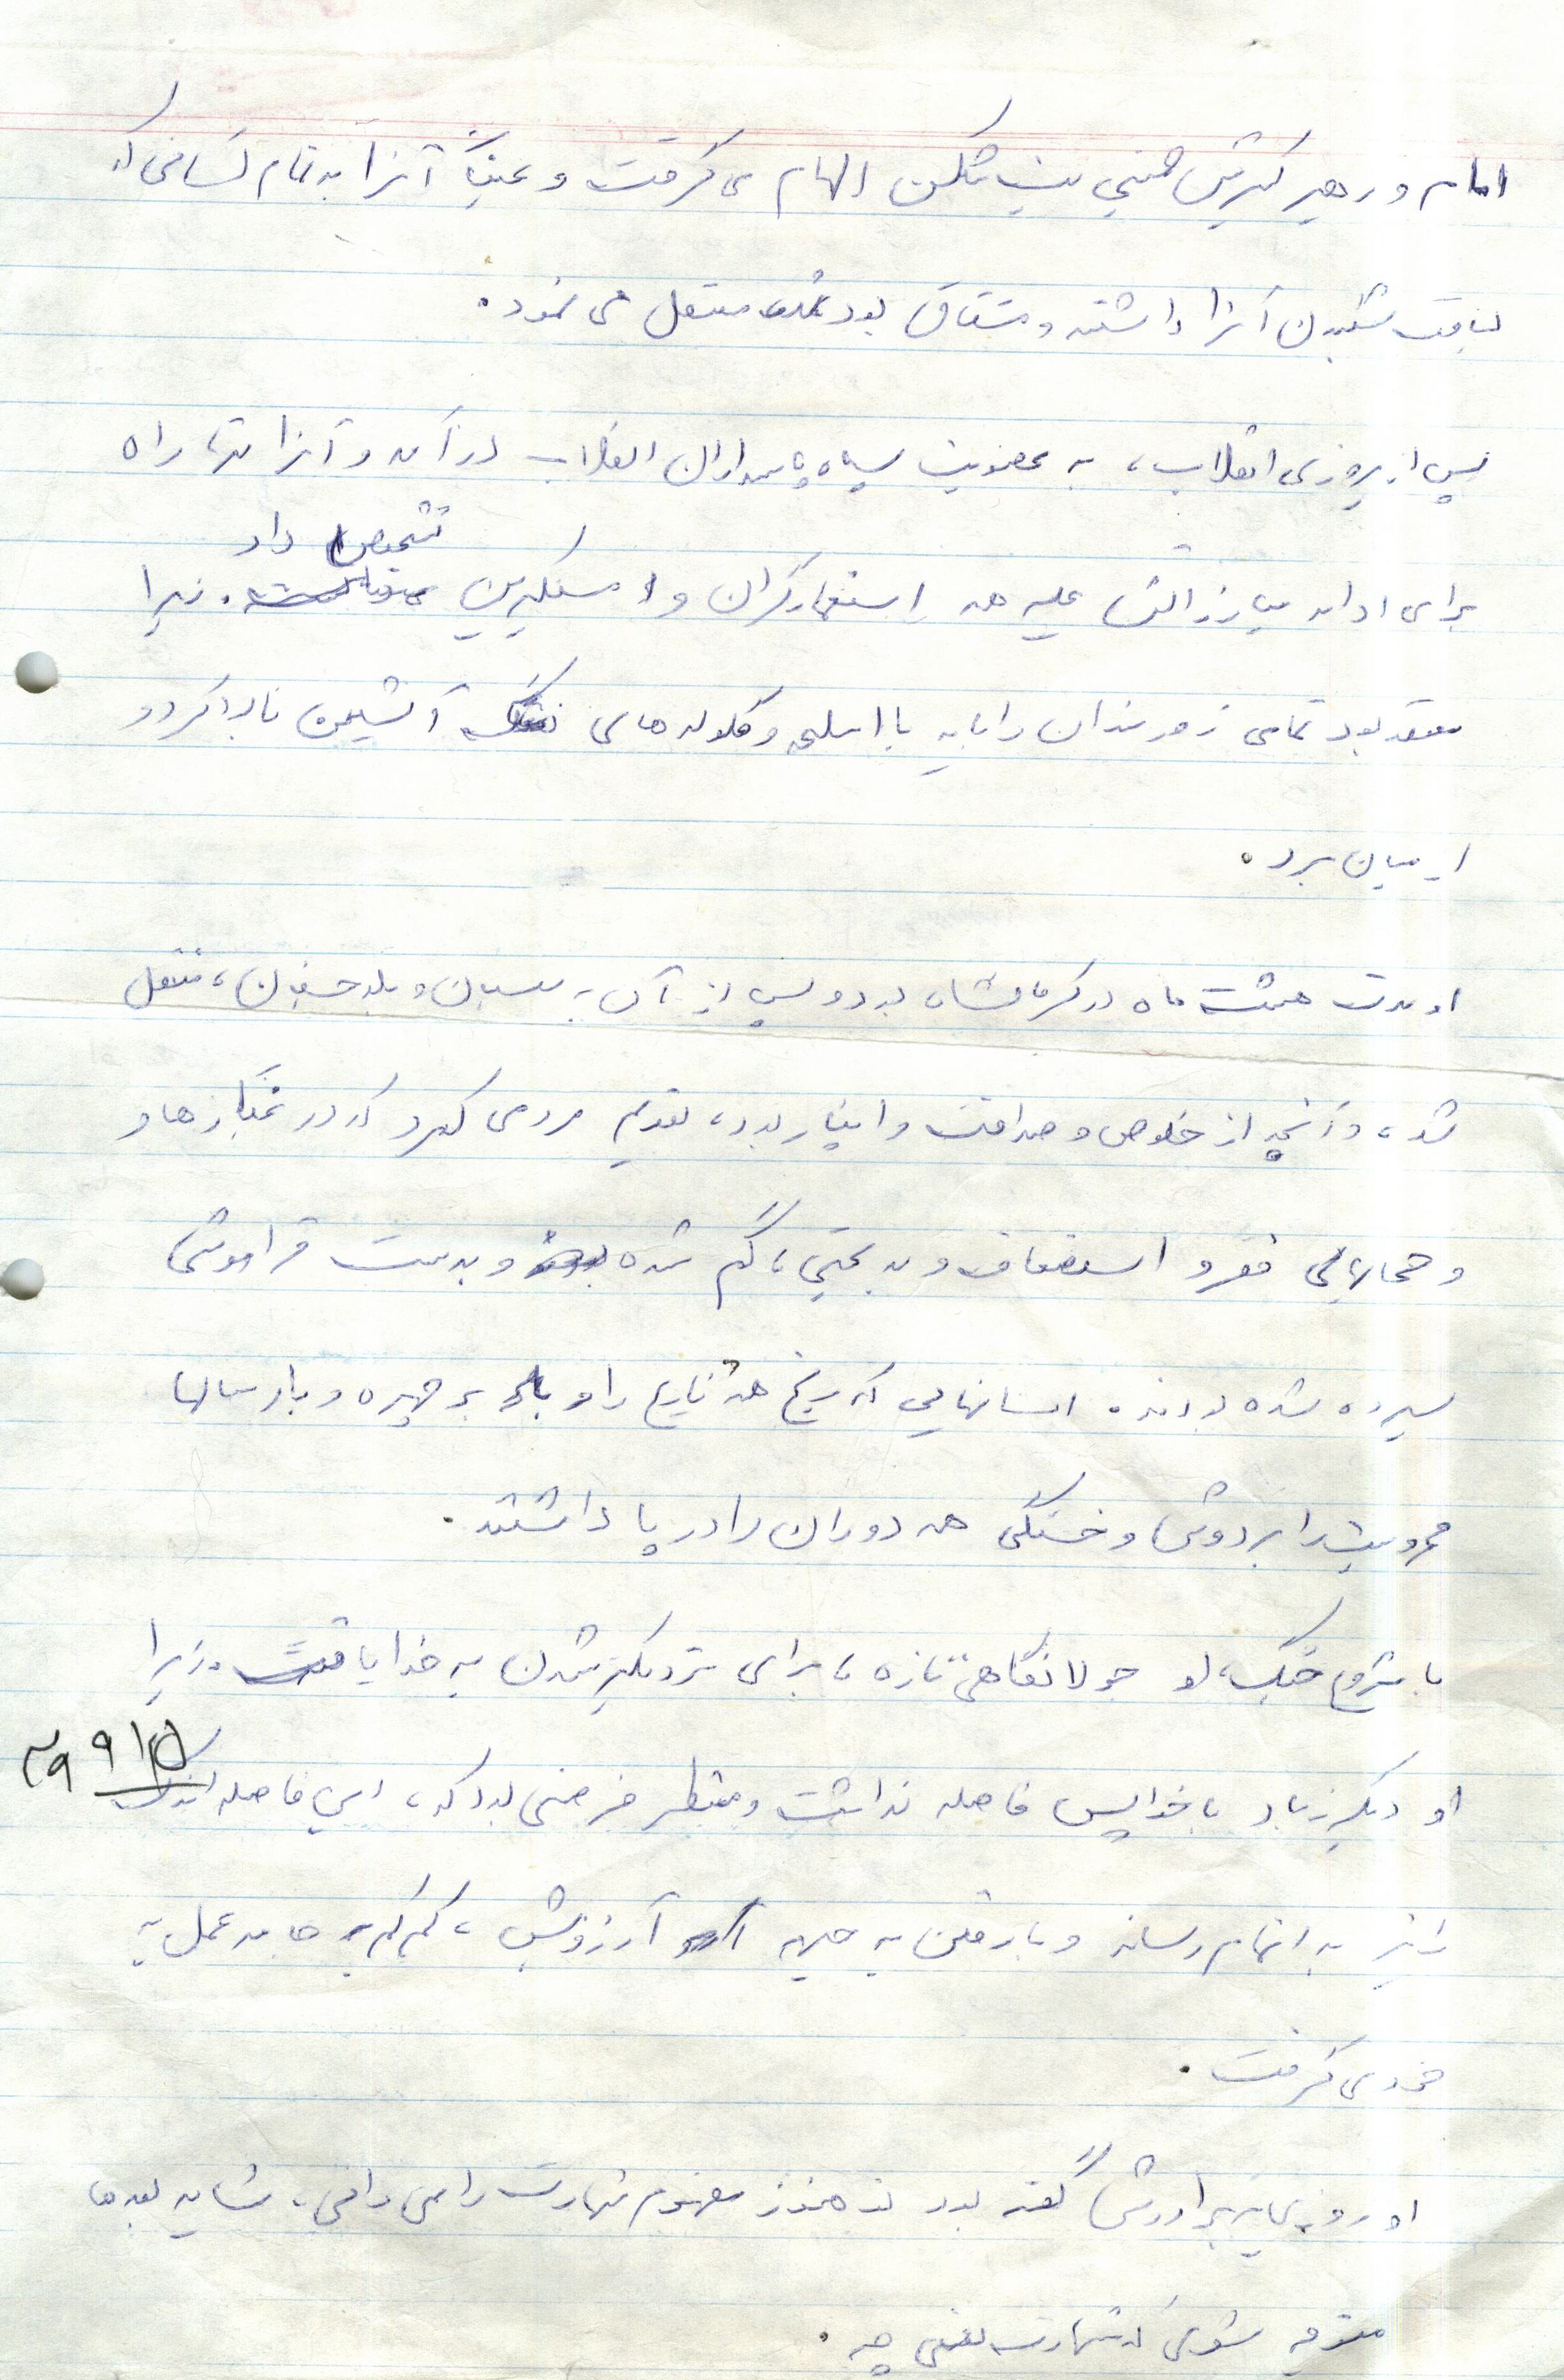 امام و رهبر کبیرش خمینی بت شکن الهام می گرفت و عیناً آنرا به تمام کسانی که
لیاقت شنیدن آنرا داشته و مشتاق بودند منتقل می نمود.
پس از پیروزی انقلاب، به عضویت سپاه پاسداران انقلاب درآمد و آنرا تنها راه
برای ادامه مبارزاتش علیه همه استعمارگران و مستکبرین تشخیص داد. زیرا
معتقد بود تمامی زورمندان را باید با اسلحه و گلوله های آتشین نابود کرد و
از میان برد.
او مدت هشت ماه در کرمانشاه بود و پس از آن به سیستان و بلوچستان، منتقل
شد، و آنچه از خلوص و صداقت و ایثار بود، تقدیم مردمی کرد که در نمکزارها و
و فقر و استضعاف و بدبختی، گم شده و بدست فراموشی
سپرده شده بودند. انسانهایی که رنج همه تاریخ را بر چهره و بار سالها
محرومیت را بر دوش و خستگی همه دوران را در پا داشتند.
با شروع جنگ، او جولانگاهی تازه، برای نزدیکتر شدن به خدا یافت. زیرا
او دیگر زیاد با خدایش فاصله نداشت و منتظر فرصتی بود که، این فاصله اندک
را نیز به اتمام رساند و با رفتن به جبهه آرزویش، کم کم جامه عمل به
خود می گرفت.
او روزی به برادرش گفته بود تو هنوز مفهوم شهادت را نمی دانی، شاید بعدها
متوجه شوی که شهادت یعنی چه.